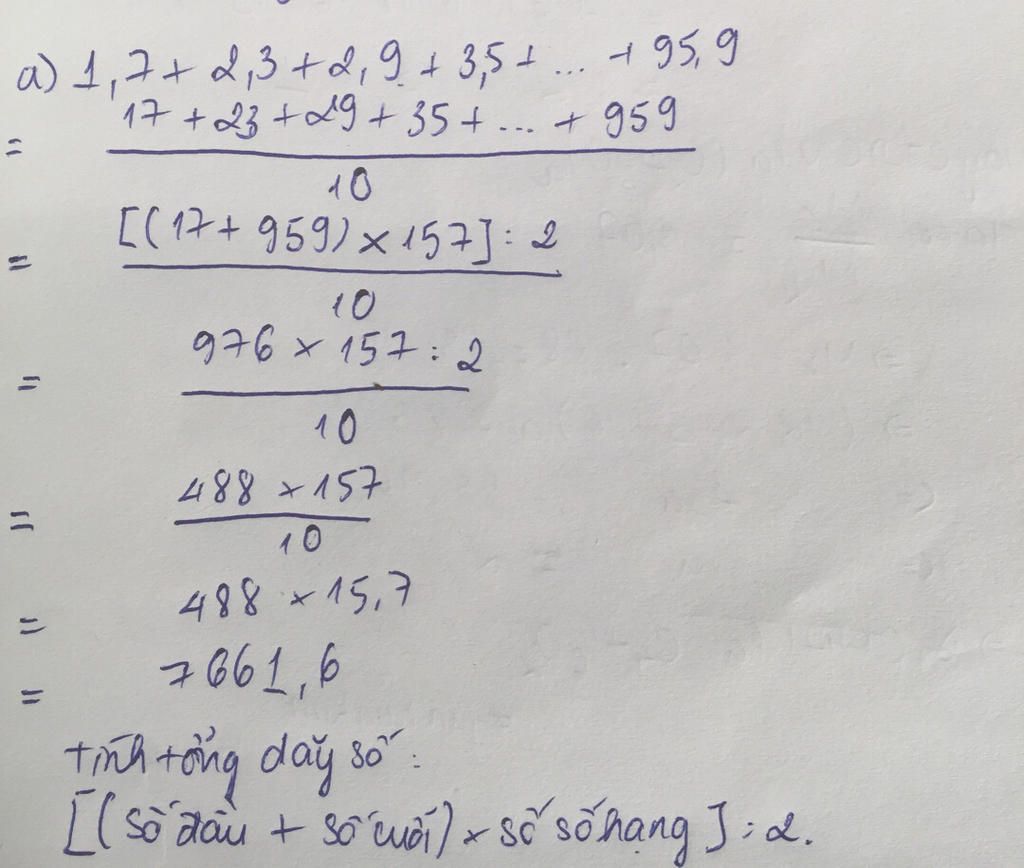 a) 1,7 + 2,3 + 2,9 + 3,5 + ... + 95,9
17 + 23 + 29 + 35 + ... + 959
=
10
[(17 + 959) × 157] : 2
=
10
976 × 157 : 2
=
10
488 × 157
=
10
= 488 × 15,7
= 7661,6
tính tổng dãy số :
[(số đầu + số cuối) × số số hạng] : 2.